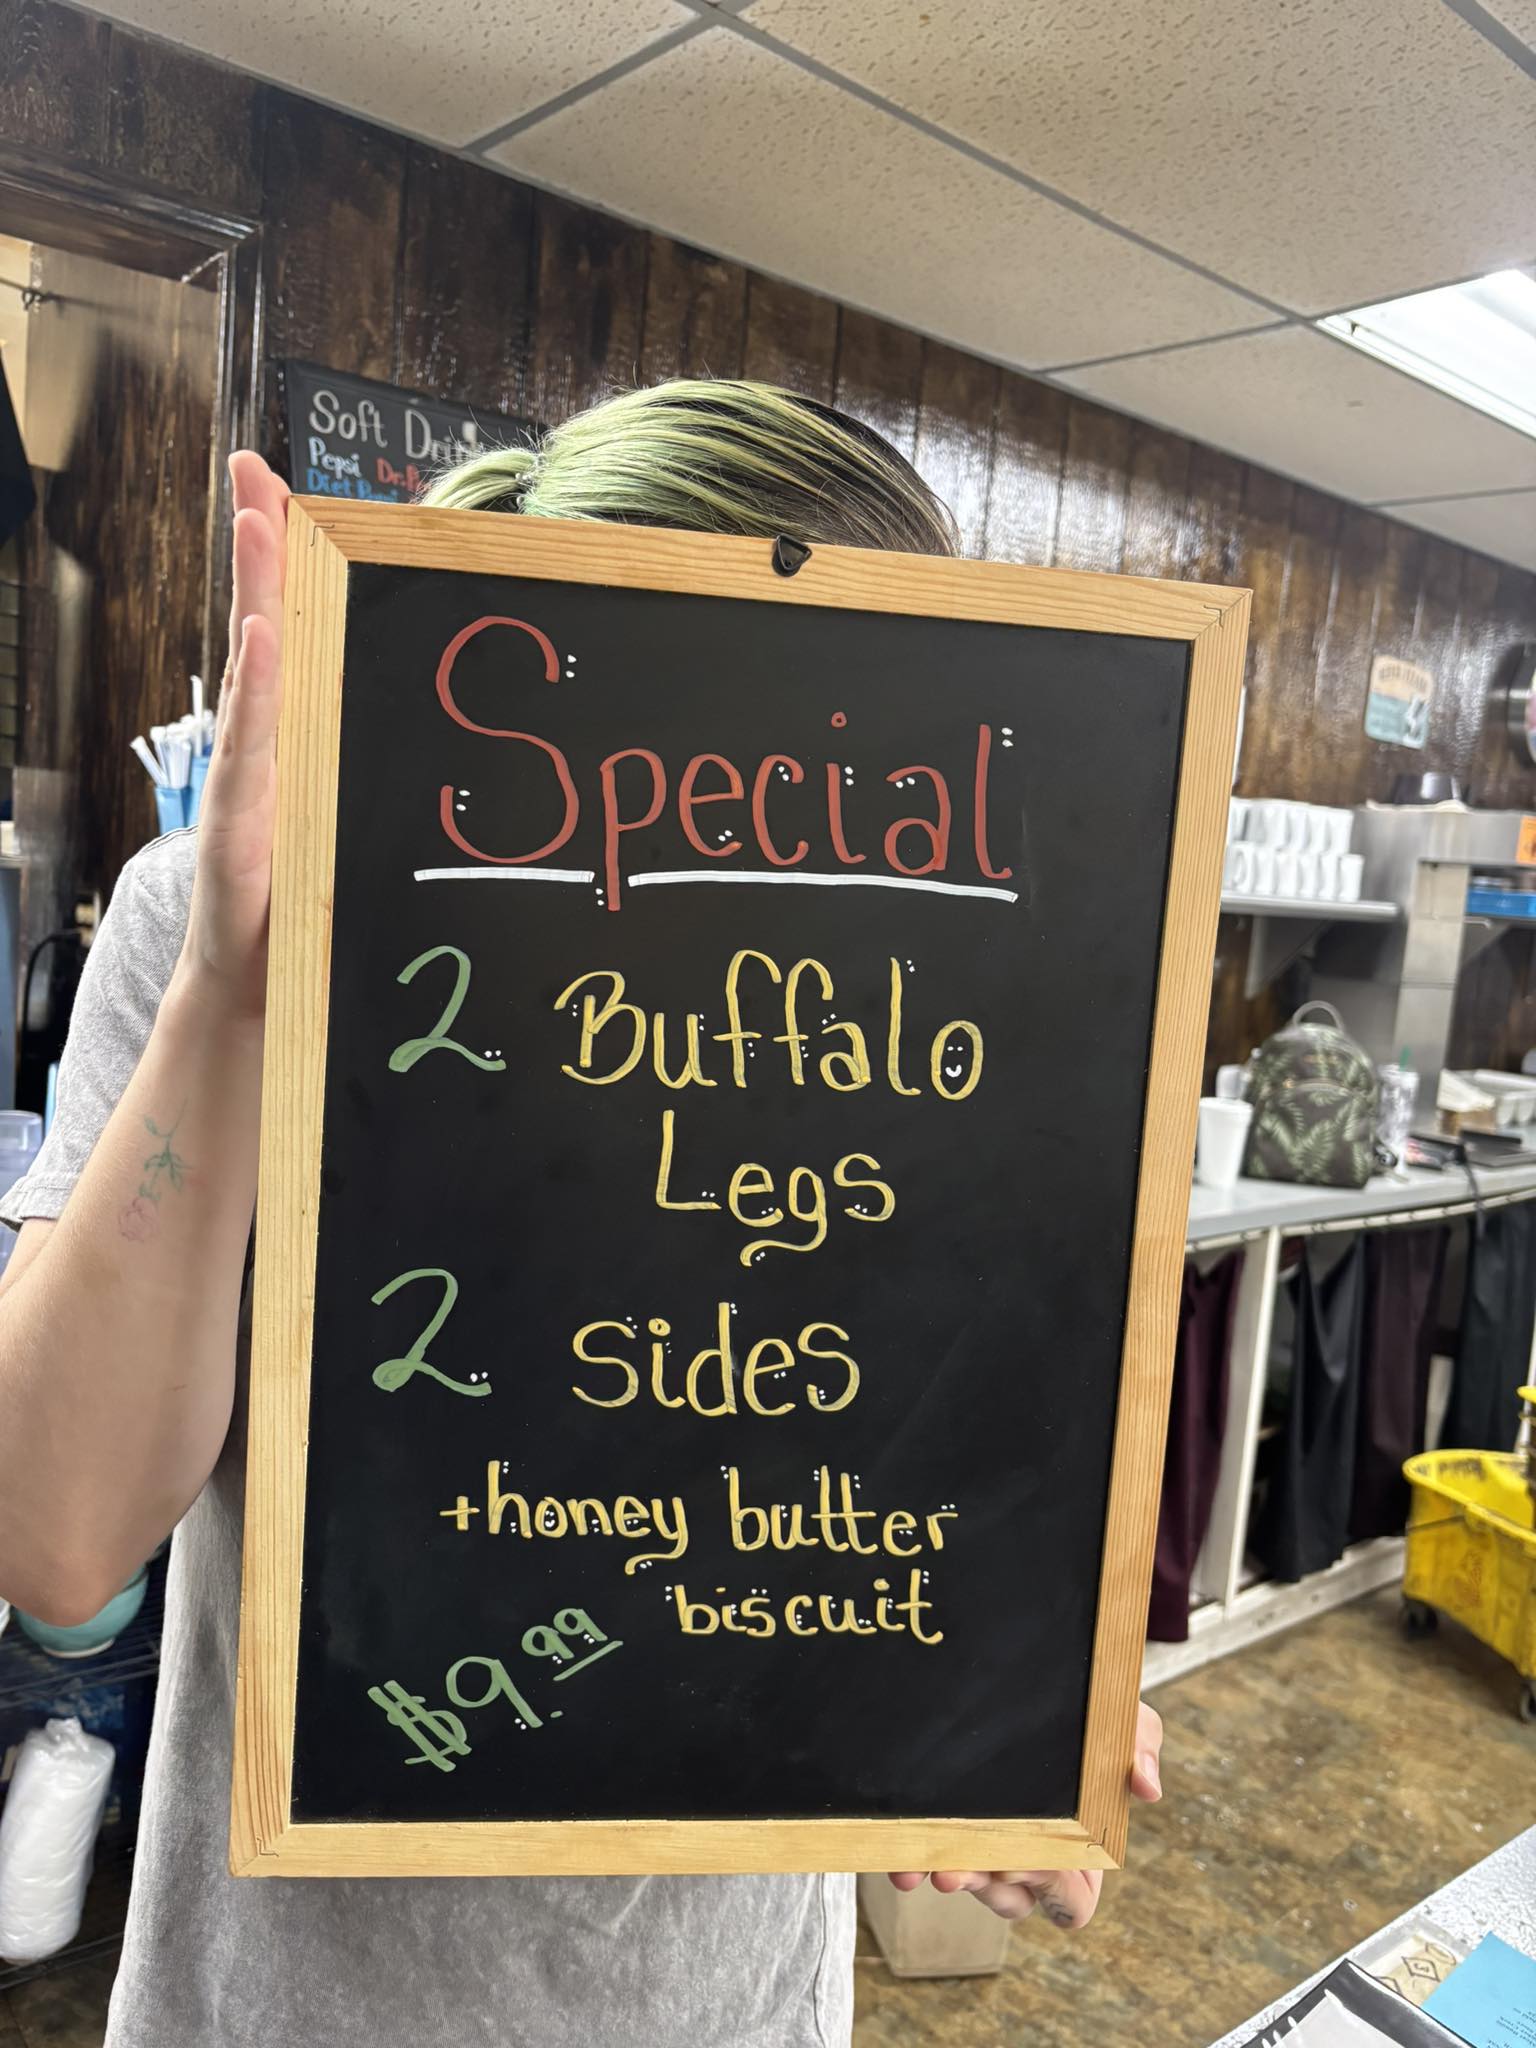 Soft
Pepsi
Diet Pepsi
Special
2 Buffalo
Legs
2 sides
+honey butter
biscuit
$9.99